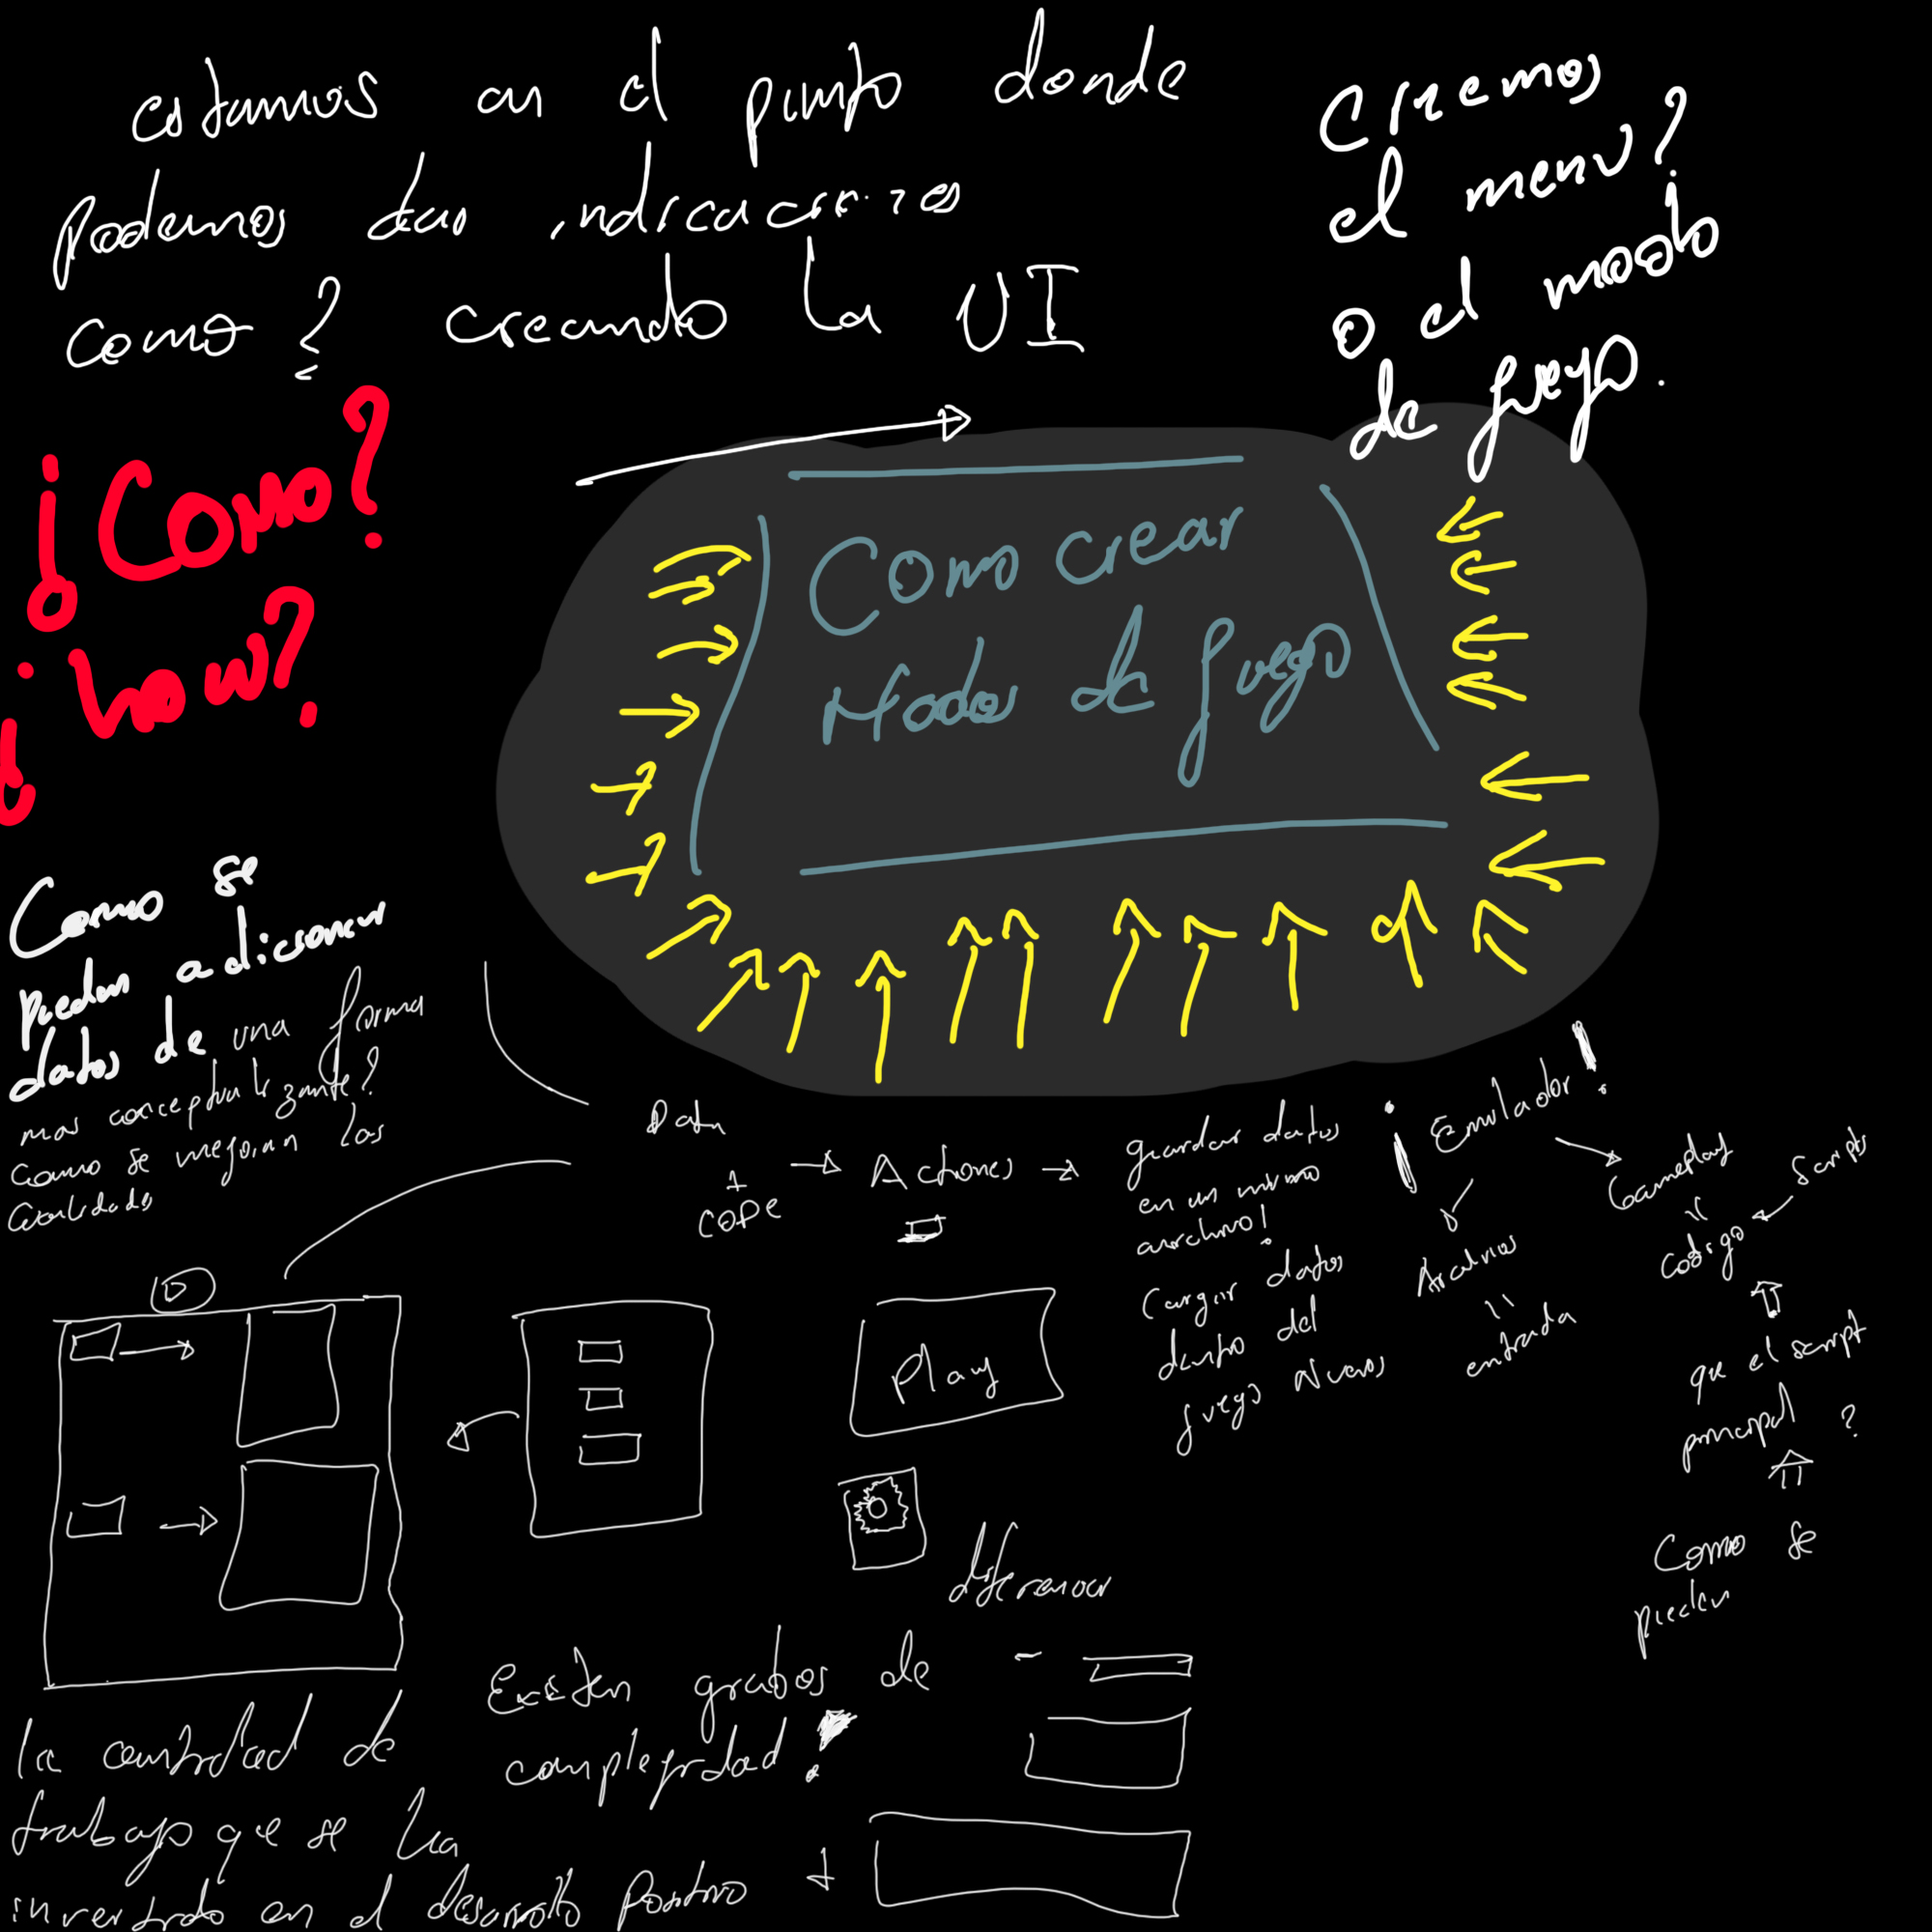 estamos en el punto donde
podemos dar indicaciones
como? creando la UI
Creemos
el menu?
o el modo
de juego.
¿Como?
¿how?
Como crear
Modo de juego
Como se
pueden adicionar
datos de una forma
mas conceptualizante?
Como se mejoran las
Cualidades
Data
COPE
→ Actiones →
guardar datos
en un mismo
archivo!
Cargar datos
dentro del
juego Nuevos
¡Emulador!
Archivos
entrada
Gameplay
Scripts
Codigo
que el script
principal ?
Como se
pueden
Play
diferenciar
Existen grados de
complejidad!
la cantidad de
trabajo que se ha
invertido en el desarrollo Positivo +